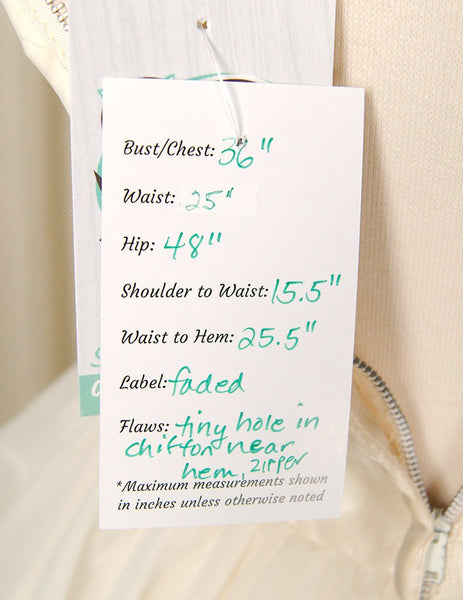 Bust/Chest: 36"
Waist: 25"
Hip: 48"
Shoulder to Waist: 15.5"
Waist to Hem: 25.5"
Label: faded
Flaws: tiny hole in
chiffon near
hem, ZIPPER
*Maximum measurements shown
in inches unless otherwise noted